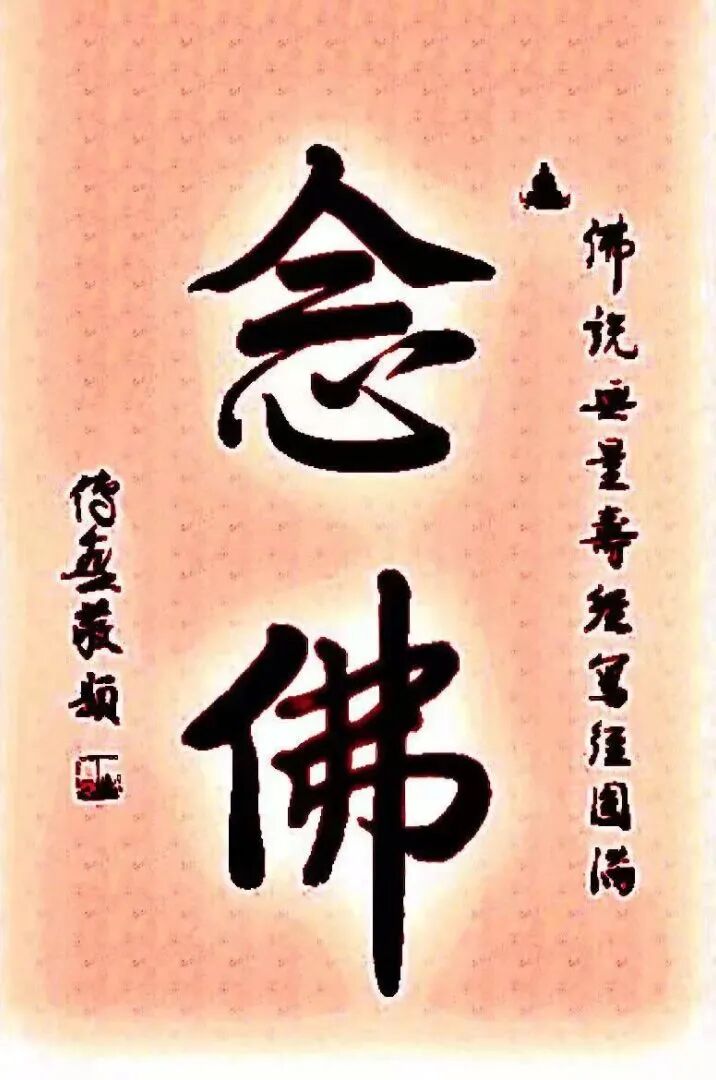 佛說無量壽經寫經圓滿
念佛
傳敬題